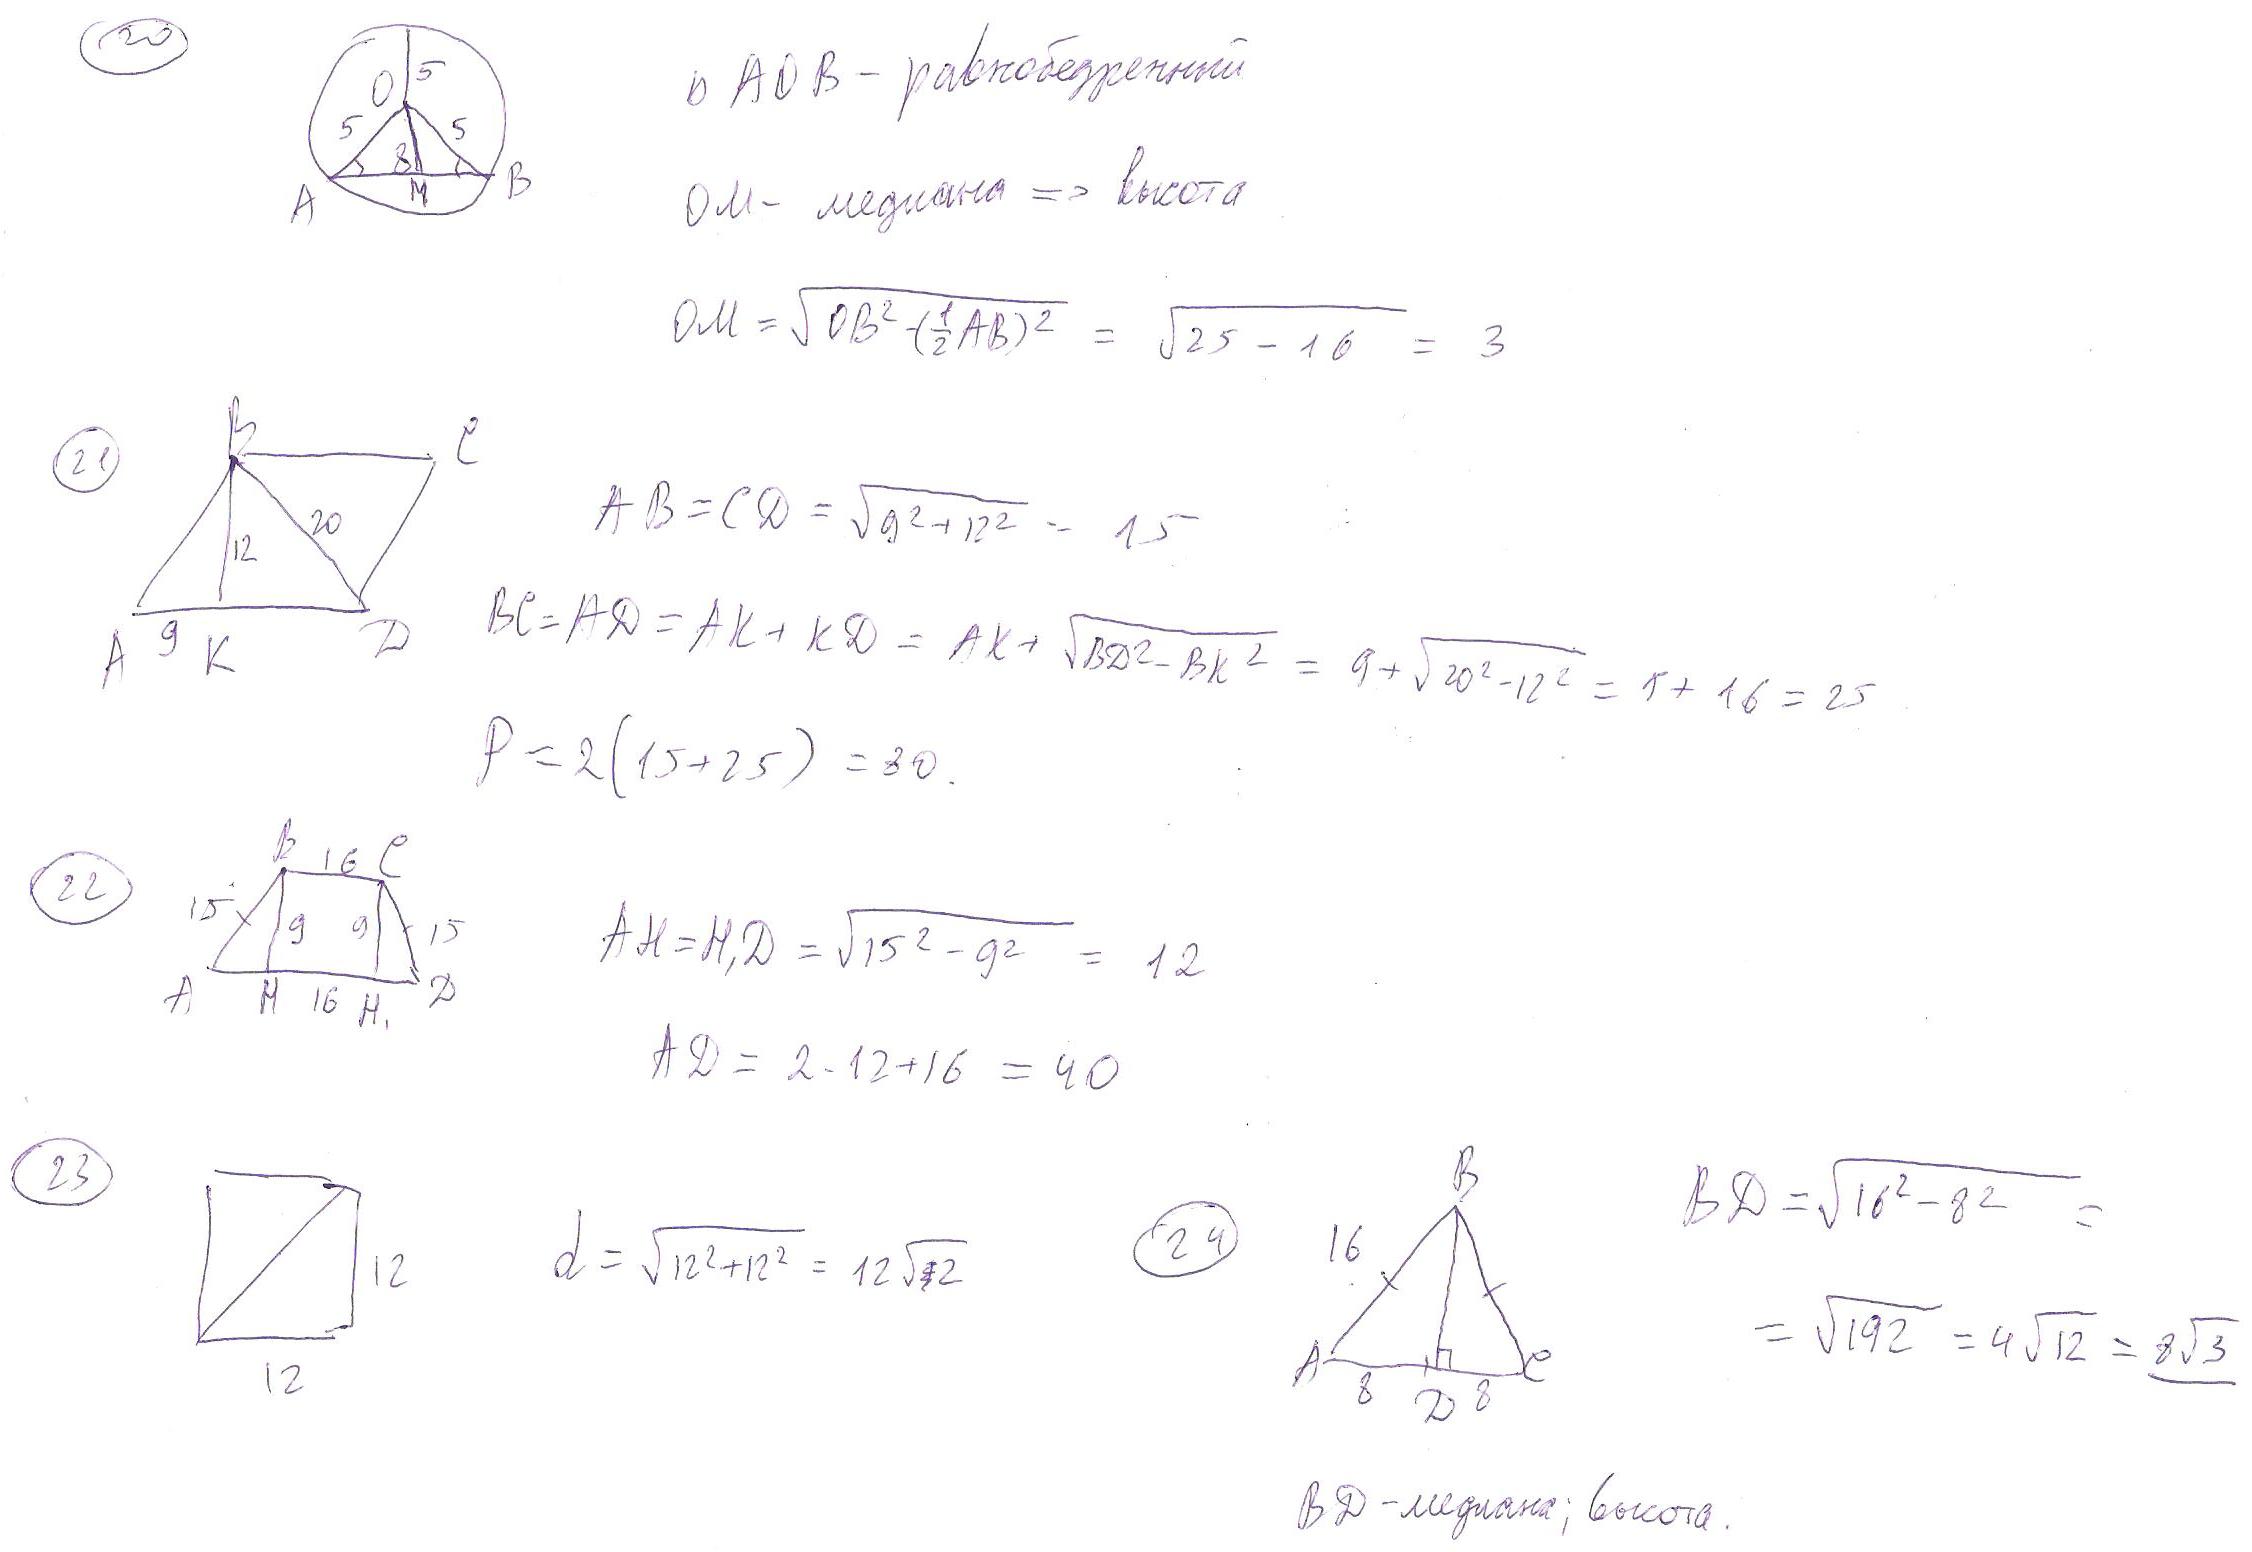 20
O 5
5 5
8
A M B
△ AOB - равнобедренный
OM - медиана => высота
OM = √(OB² - (½AB)²) = √(25 - 16) = 3
21
B C
20
12
A 9 K D
AB = CD = √(9² + 12²) - 15
BC = AD = AK + KD = AK + √(BD² - BK²) = 9 + √(20² - 12²) = 9 + 16 = 25
P = 2(15 + 25) = 80.
22
B 16 C
15 9 9 15
A H 16 H₁ D
AH = H₁D = √(15² - 9²) = 12
AD = 2·12 + 16 = 40
23
12
12
d = √(12² + 12²) = 12√2
24
B
16
A 8 D 8 C
BD = √(16² - 8²) =
= √192 = 4√12 = 8√3
BD - медиана; высота.